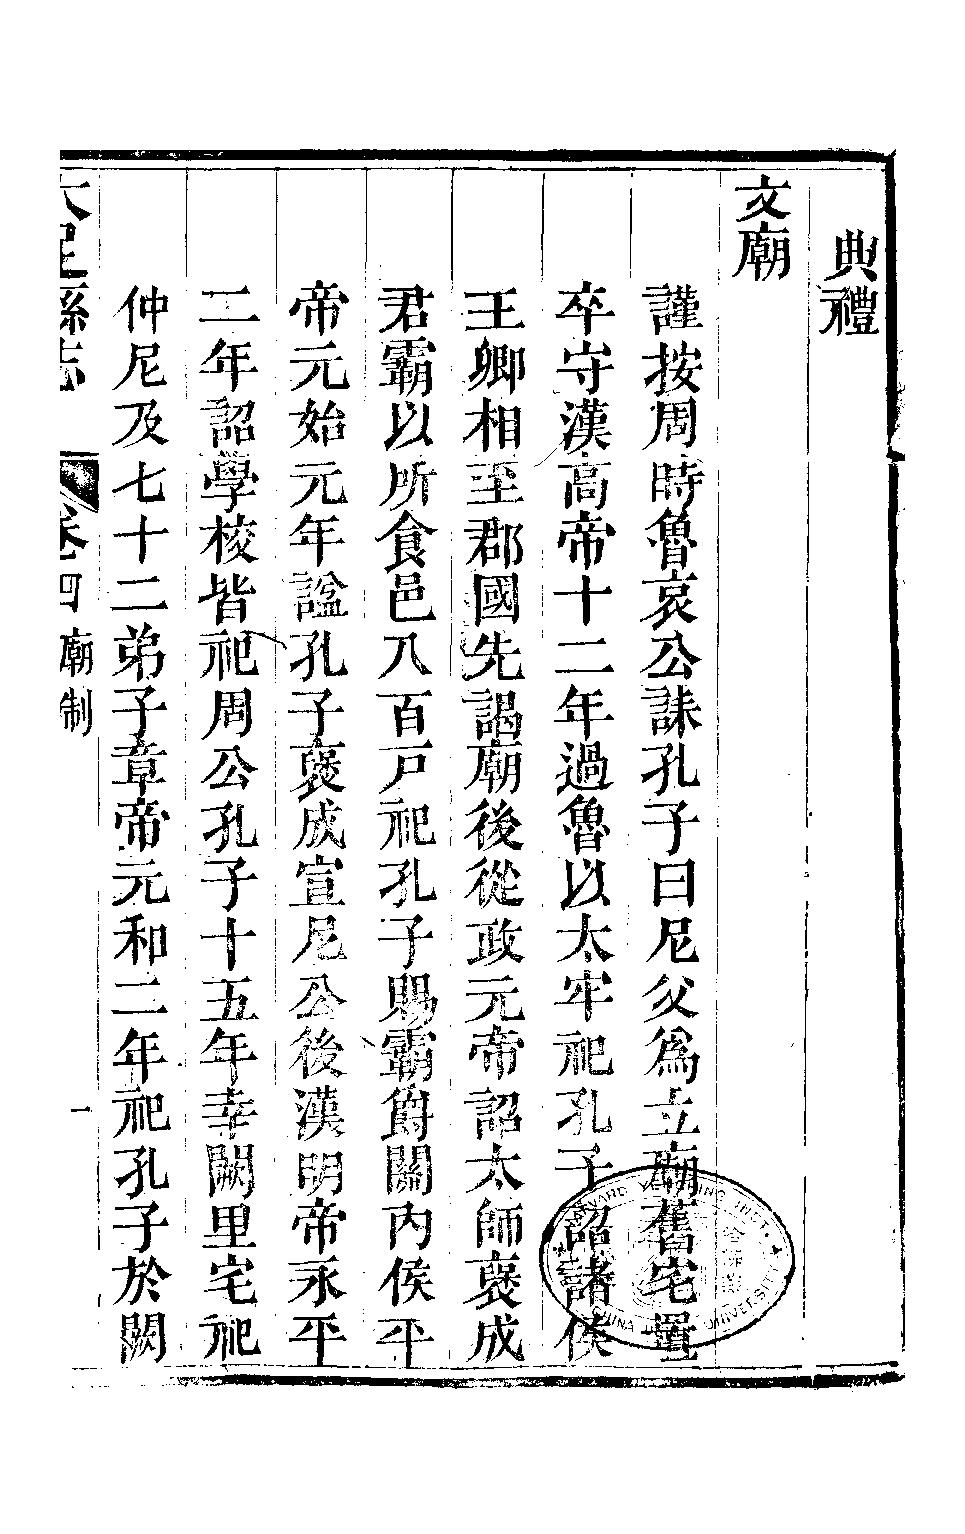 典禮
文廟
謹按周時魯哀公誄孔子曰尼父爲立廟舊宅置
卒守漢高帝十二年過魯以太牢祀孔子詔諸侯
王卿相至郡國先謁廟後從政元帝詔太師褒成
君霸以所食邑八百戸祀孔子賜霸爵關內侯平
帝元始元年諡孔子褒成宣尼公後漢明帝永平
二年詔學校皆祀周公孔子十五年幸闕里宅祀
仲尼及七十二弟子章帝元和二年祀孔子於闕
大足縣志 卷四 廟制 一